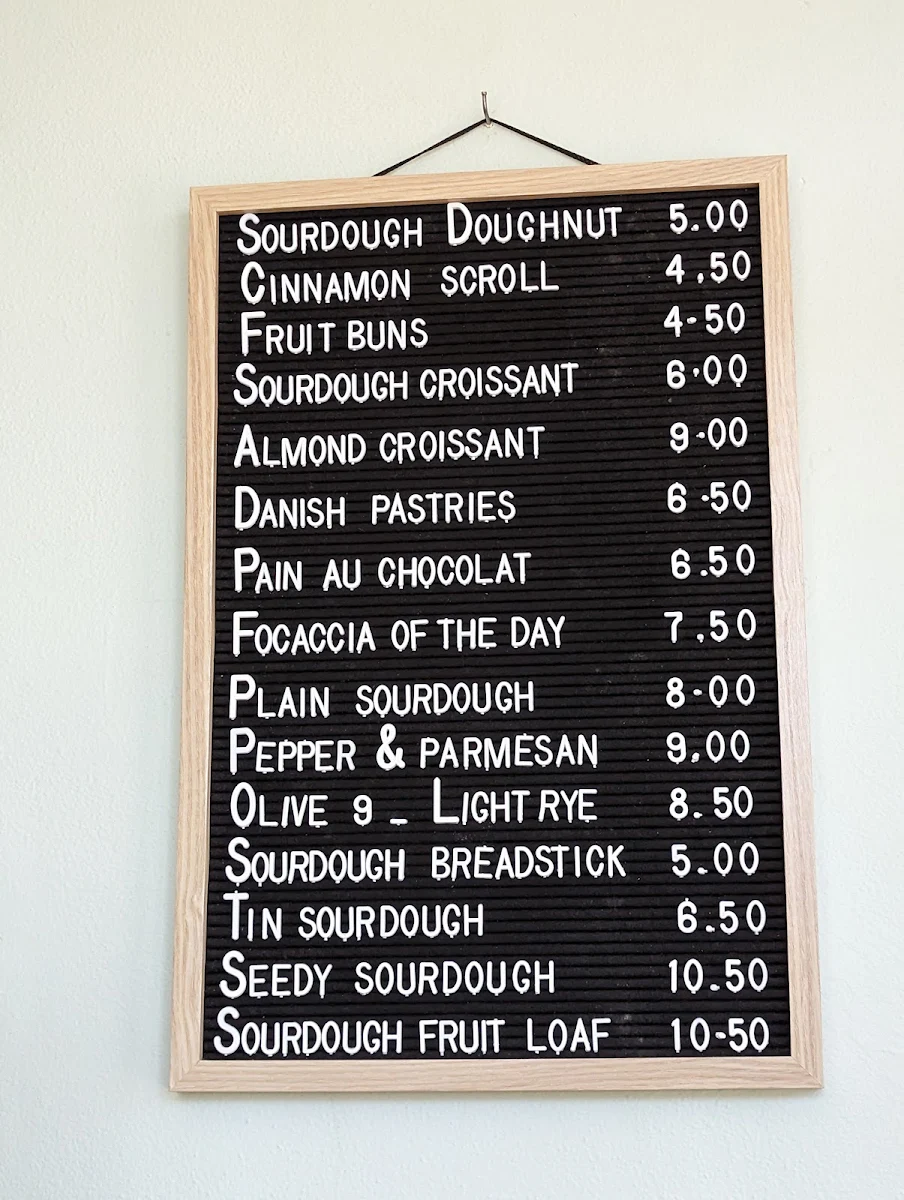 SOURDOUGH DOUGHNUT 5.00
CINNAMON SCROLL 4.50
FRUIT BUNS 4-50
SOURDOUGH CROISSANT 6·00
ALMOND CROISSANT 9·00
DANISH PASTRIES 6·50
PAIN AU CHOCOLAT 6.50
FOCACCIA OF THE DAY 7.50
PLAIN SOURDOUGH 8-00
PEPPER & PARMESAN 9.00
OLIVE 9_ LIGHT RYE 8.50
SOURDOUGH BREADSTICK 5.00
TIN SOURDOUGH 6.50
SEEDY SOURDOUGH 10.50
SOURDOUGH FRUIT LOAF 10-50